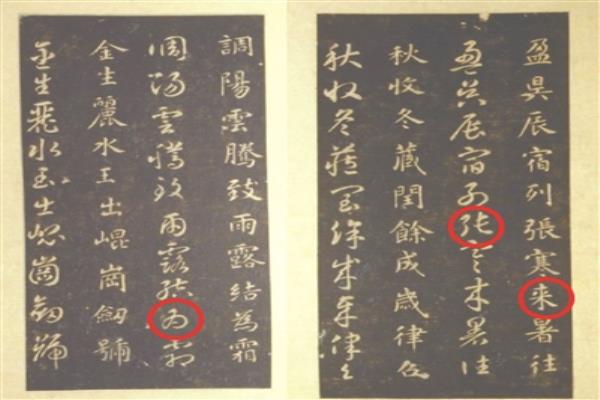 盈昃辰宿列張寒来暑往
盈昃辰宿列張寒来暑往
秋收冬藏閏餘成歲律
秋收冬藏閏餘成歲律
調陽雲騰致雨露結為霜
調陽雲騰致雨露結為霜
金生麗水玉出崐崗劔號
金生麗水玉出崐崗劔號